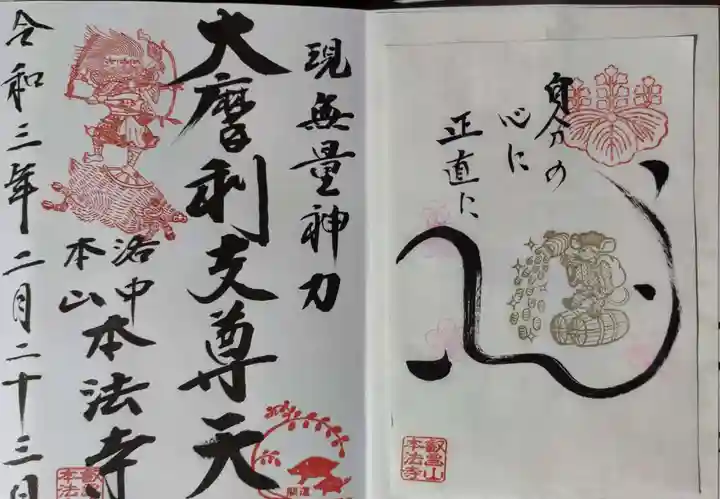 自分の
心に
正直に
心
叡昌山
本法寺
現無量神力
大摩利支尊天
洛中
本山
本法寺
令和三年二月二十三日
開運